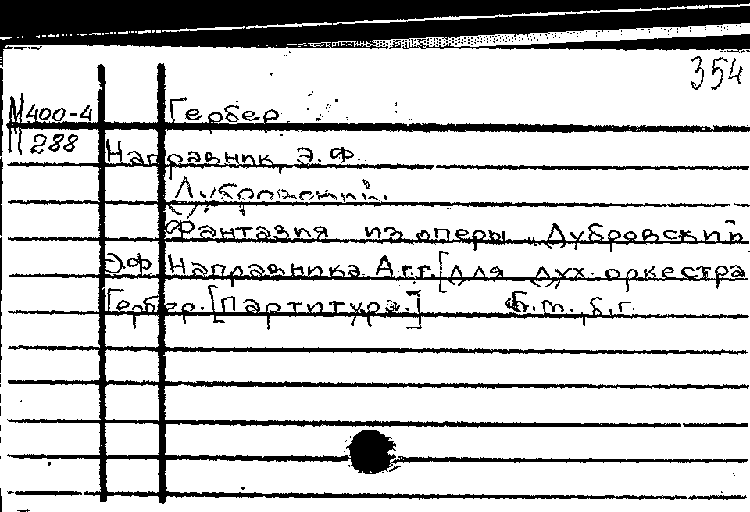 354
М400-4 Гербер
П288
Направник, Э.Ф.
Дубровский.
Фантазия из оперы „Дубровский"
Э.Ф. Направника. Arr. [для дух. оркестра
Гербер. [Партитура.] б.м., б.г.